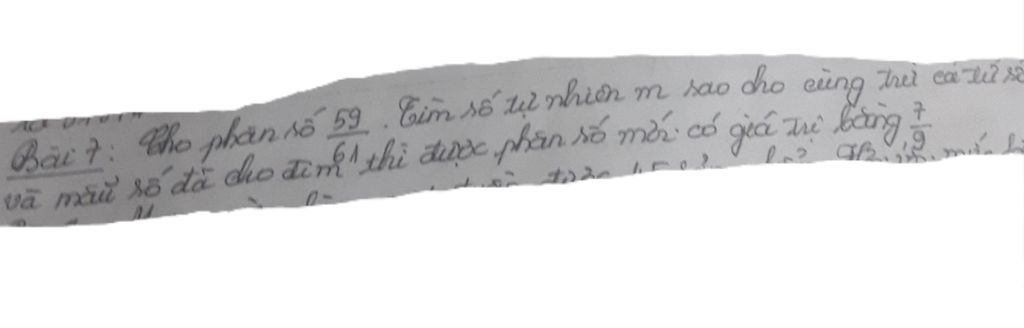 Bài 7: Cho phân số 59/61. Tìm số tự nhiên m sao cho cùng trừ cả tử số
và mẫu số đã cho đi m thì được phân số mới có giá trị bằng 7/9